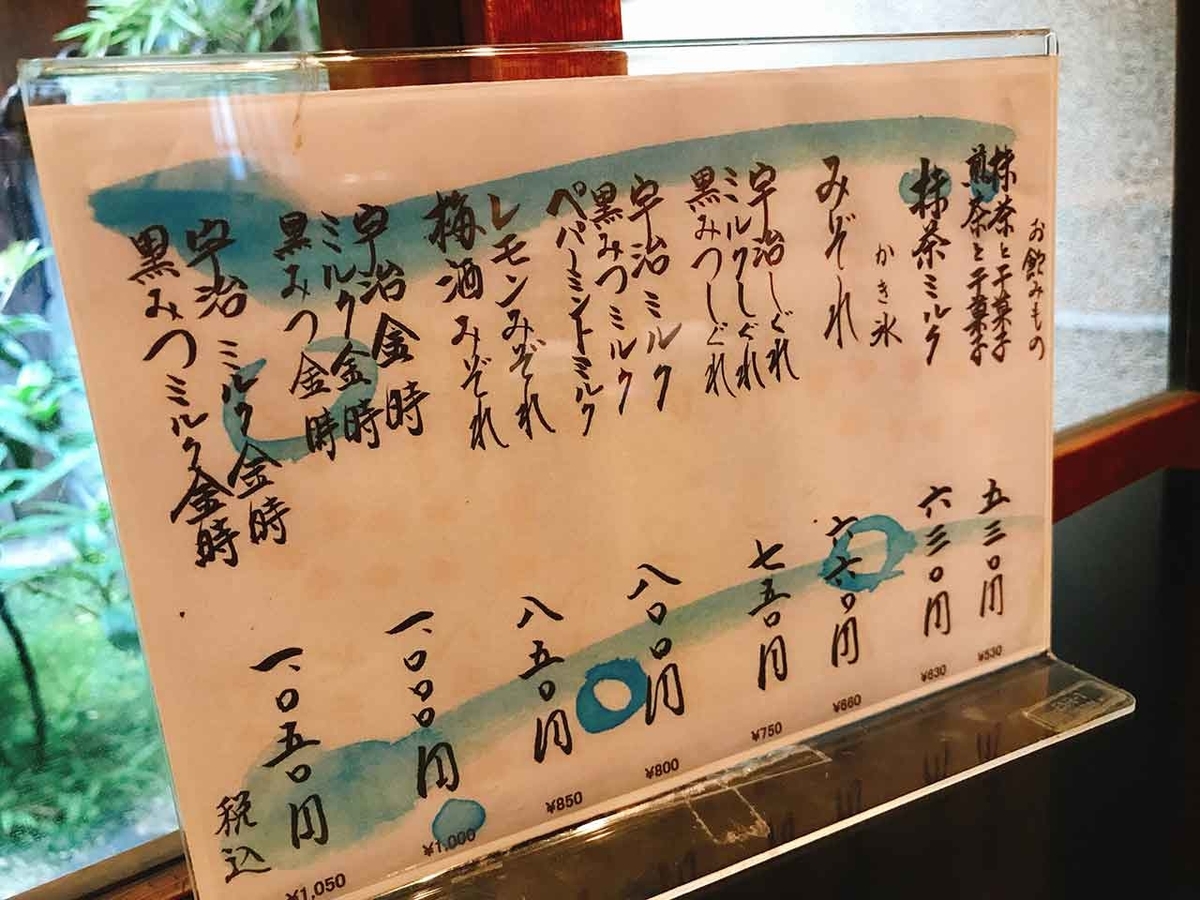 お飲みもの
抹茶と干菓子
煎茶と干菓子
五三〇円
¥530
抹茶ミルク
六三〇円
¥630
かき氷
みぞれ
六六〇円
¥660
宇治しぐれ
ミルクしぐれ
黒みつしぐれ
七五〇円
¥750
宇治ミルク
黒みつミルク
ペパーミントミルク
八〇〇円
¥800
レモンみぞれ
梅酒みぞれ
八五〇円
¥850
宇治金時
ミルク金時
黒みつ金時
一、〇〇〇円
¥1,000
宇治ミルク金時
黒みつミルク金時
一、〇五〇円
¥1,050
税込